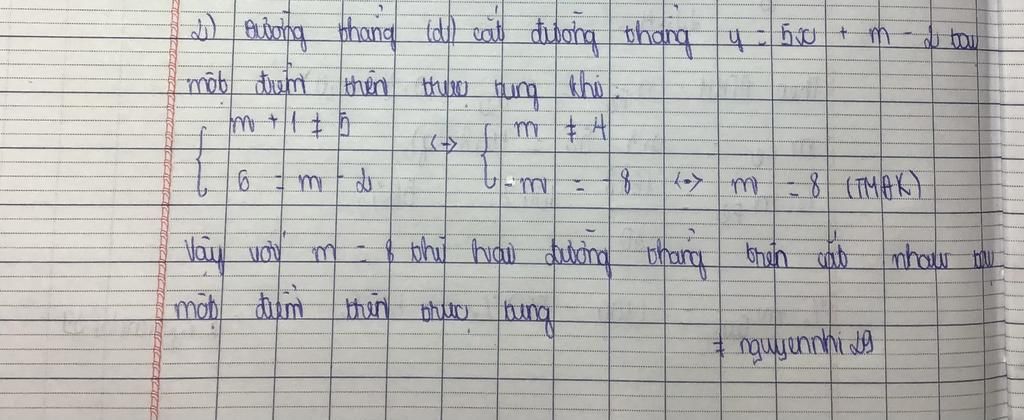 2) Đường thẳng (d) cắt đường thẳng y = 5x + m - 2 tại
một điểm trên trục tung khi:
{ m + 1 ≠ 5 <-> { m ≠ 4
{ 6 = m - 2 { -m = -8 <-> m = 8 (TMĐK)
Vậy với m = 8 thì hai đường thẳng trên cắt nhau tại
một điểm trên trục tung
≠ nguyennhi29